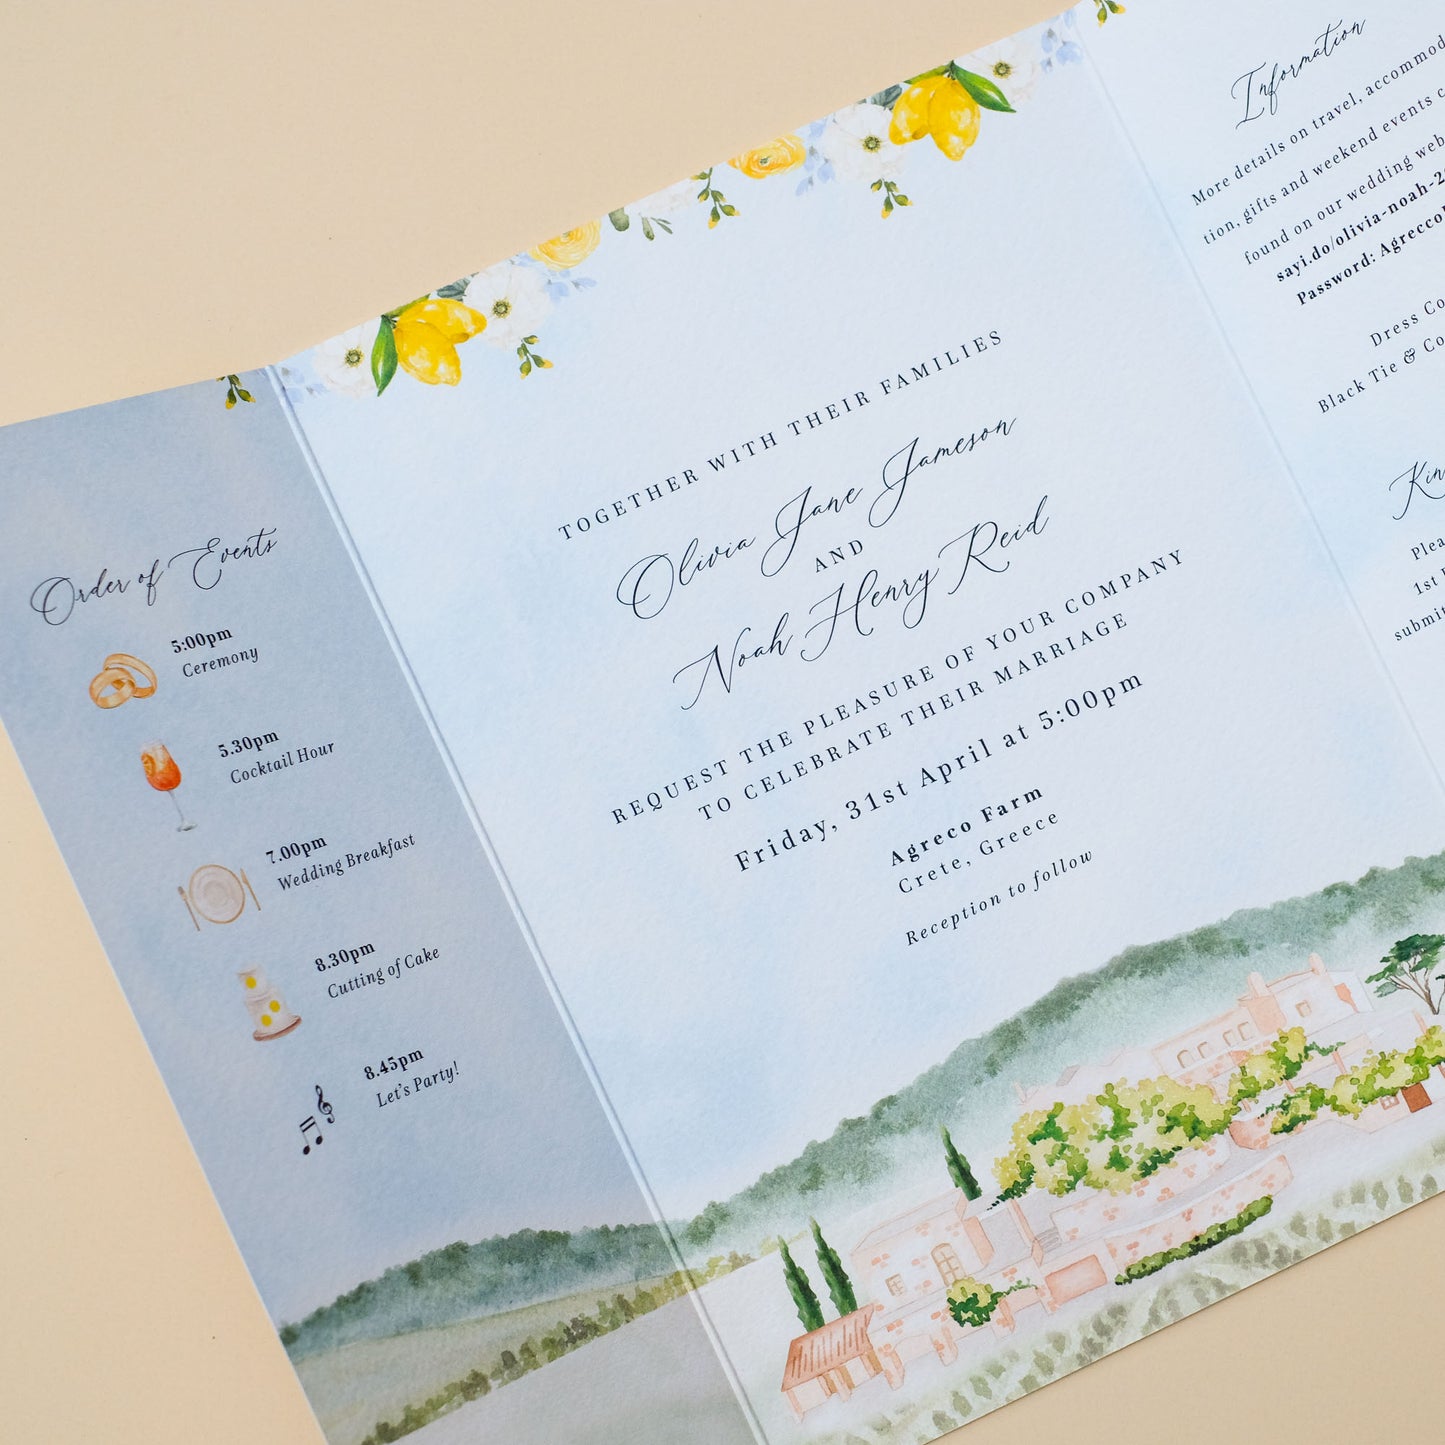 Order of Events
5:00pm
Ceremony
5.30pm
Cocktail Hour
7.00pm
Wedding Breakfast
8.30pm
Cutting of Cake
8.45pm
Let's Party!
TOGETHER WITH THEIR FAMILIES
Olivia Jane Jameson
AND
Noah Henry Reid
REQUEST THE PLEASURE OF YOUR COMPANY
TO CELEBRATE THEIR MARRIAGE
Friday, 31st April at 5:00pm
Agreco Farm
Crete, Greece
Reception to follow
Information
More details on travel,
tion, gifts and weekend events
found on our wedding
Password:
Dress
Black Tie &
1st